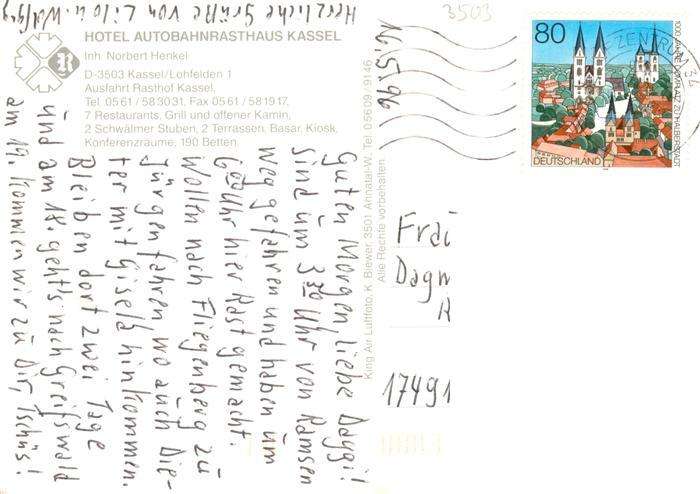 Herzliche Grüße von Lilo u. Wolfg
HOTEL AUTOBAHNRASTHAUS KASSEL
Inh. Norbert Henkel
D-3503 Kassel/Lohfelden 1
Ausfahrt Rasthof Kassel,
Tel. 05 61 / 58 30 31, Fax 05 61 / 58 19 17,
7 Restaurants, Grill und offener Kamin,
2 Schwälmer Stuben, 2 Terrassen, Basar, Kiosk,
Konferenzräume, 190 Betten.
R
Guten Morgen liebe Daggi!
Sind um 3.30 Uhr von Ramsen
weggefahren und haben um
Uhr hier Rast gemacht.
Wollen nach Fliegenberg zu
Jürgen fahren wo auch Die-
ter mit Gisela hinkommen.
Bleiben dort zwei Tage
und am 18. geht's nach Greifswald
am 19. kommen wir zu Dir, Tschüs!
King Air Luftfoto, K. Biewer, 3501 Ahnatal-W., Tel. 0 56 09 / 91 46
Alle Rechte vorbehalten
3503
16.5.96
80
1000 JAHRE DOMPLATZ ZU HALBERSTADT
DEUTSCHLAND
ZENTRU
Frau
Dagm
R
17491